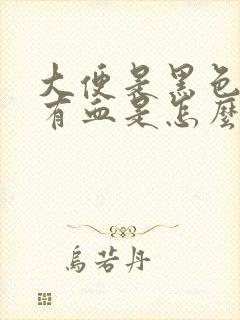 大便是黑色
有血是怎麼
烏若丹